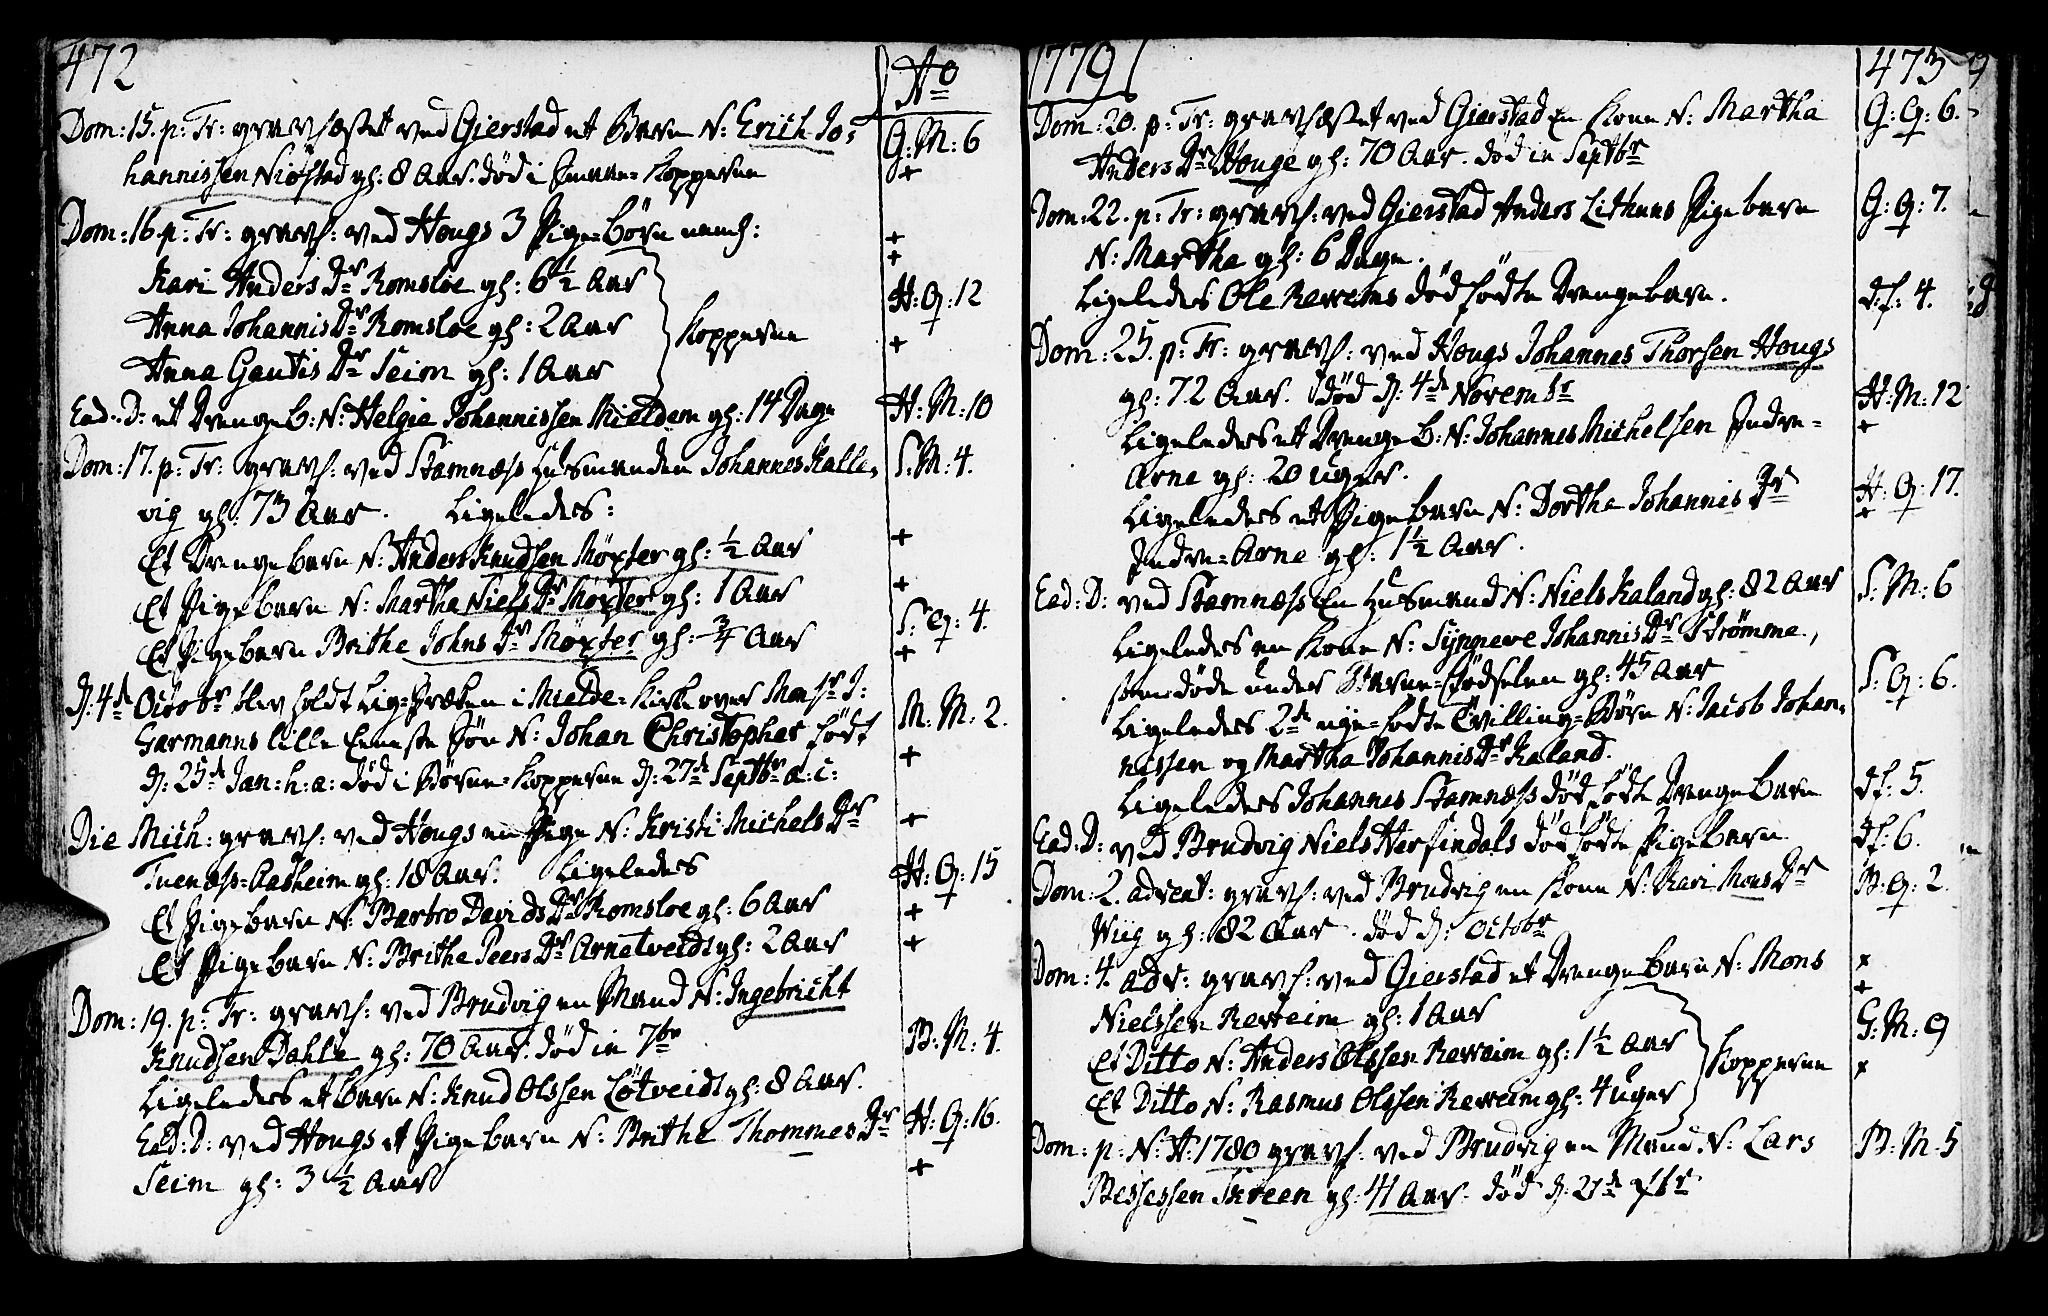 472
Ao
Dom: 15. p: Tr: gravfæstet ved Gierstad et Barn N: Erich Jo-
G: M: 6
hannissen Niøstad gl: 8 Aar. død i Kopperne
+
Dom: 16 p: Tr: gravf: ved Hougs 3 Pige-Børn nemL:
+
Kari Anders Dr Romsloe gl: 6½ Aar
+
H: Q: 12
Anna Johannis Dr Romsloe gl: 2 Aar
Kopperne
+
Anna Gautis Dr Seim gl: 1 Aar
Ead: D: et Drengeb: N: Helgie Johannissen Mieldem gl: 14 Dage
H: M: 10
Dom: 17. p: Tr: gravf: ved Stamnæss Husmanden Johannes Kalle-
S: M: 4.
vig gl: 73 Aar. Ligeledes:
Et Drengebarn N: Anders Knudsen Møxter gl: ½ Aar
+
Et Pigebarn N: Martha Niels Dr Møxter gl: 1 Aar
+
S: Q: 4.
Et Pigebarn Brithe Johns Dr Møxter gl: ¾ Aar
+
D: 4de Octobr blev holdt Lig-Præken i Mielde-Kirke over Monsr J:
Garmanns lille eeneste Søn N: Johan Christopher født
M: M: 2.
D: 25de Jan: h: a: død i Børne-Kopperne D: 27de Septbr a: c:
+
Die Mich: gravf: ved Hougs en Pige N: Kristi Michels Dr
+
Tuenæss-Aasheim gl: 18 Aar. Ligeledes
H: Q: 15
Et Pigebarn N: Barbro Davids Dr Romsloe gl: 6 Aar
+
Et Pigebarn N: Brithe Peers Dr Arnetveidt gl: 2 Aar
+
Dom: 19. p: Tr: gravf: ved Brudvig en Mand N: Ingebricht
Knudsen Dahle gl: 70 Aar. død in 7br
B: M: 4.
Ligeledes et barn N: Knud Olssen Løtveidt gl: 8 Aar.
Ead: D: ved Hougs et Pigebarn N: Brithe Thommes Dr
H: Q: 16.
Seim gl: 3½ Aar
+
1779
473
Dom: 20. p: Tr: gravfæstet ved Gierstad En Kone N: Martha
G: Q: 6.
Anders Dr Houge gl: 70 Aar. død in Septbr
Dom: 22. p: Tr: gravf: ved Gierstad Anders Lithuns Pigebarn
G: Q: 7.
N: Martha gl: 6 Dage.
Ligeledes Ole Rewems dødfødte Drengebarn.
df: 4.
Dom: 25. p: Tr: gravf: ved Hougs Johannes Thorsen Hougs
gl: 72 Aar. død D: 4de Novembr
H: M: 12
Ligeledes et Drengeb: N: Johannes Michelsen Indre-
+
Arne gl: 20 uger.
Ligeledes et Pigebarn N: Dorthe Johannis Dr
H: Q: 17.
+
Indre-Arne gl: 1½ Aar.
Ead: D: ved Stamnæss En Husmand N: Niels Kaland gl: 82 Aar
S: M: 6
Ligeledes en Kone N: Synneve Johannis Dr Strømme,
som døde under Barne-fødselen gl: 45 Aar
S: Q: 6.
Ligeledes 2de nye-fødte Tvilling-Børn N: Jacob Johan-
nissen og Martha Johannis Dr Kaland.
Ligeledes Johannes Stamnæss dødfødte Drengebarn
df: 5.
Ead: D: ved Brudvig Niels Herfindals dødfødte Pigebarn
df: 6.
Dom: 2. advent: gravf: ved Brudvig en Kone N: Kari Mons Dr
B: Q: 2.
Wiig gl: 82 Aar. død D: Octobr
Dom: 4. adv: gravf: ved Gierstad et Drengebarn N: Mons
x
Nielssen Reweim gl: 1 Aar
+
Et Ditto N: Anders Olssen Reweim gl: 1½ Aar
Kopperne
G: M: 9
Et Ditto N: Rasmus Olssen Reweim gl: 4 uger
x
Dom: p: N: A: 1780 gravf: ved Brudvig en Mand N: Lars
B: M: 5
Bessessen Skreen gl: 41 Aar. død D: 27de